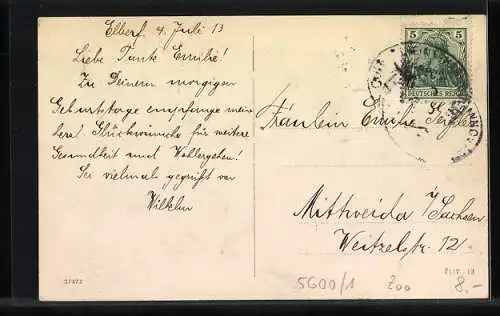 Elberf. 4. Juli 13
Liebe Tante Emilie!
Zu Deinem morgigen
Geburtstage empfange meine
herzl. Glückwünsche für weitere
Gesundheit und Wohlergehen!
Sei vielmals gegrüßt von
Wilhelm
5 5
DEUTSCHES REICH
Fräulein Emilie
Mittweida i/Sachsen
Weitzelstr. 12.
37373
5600/1 200 8.-